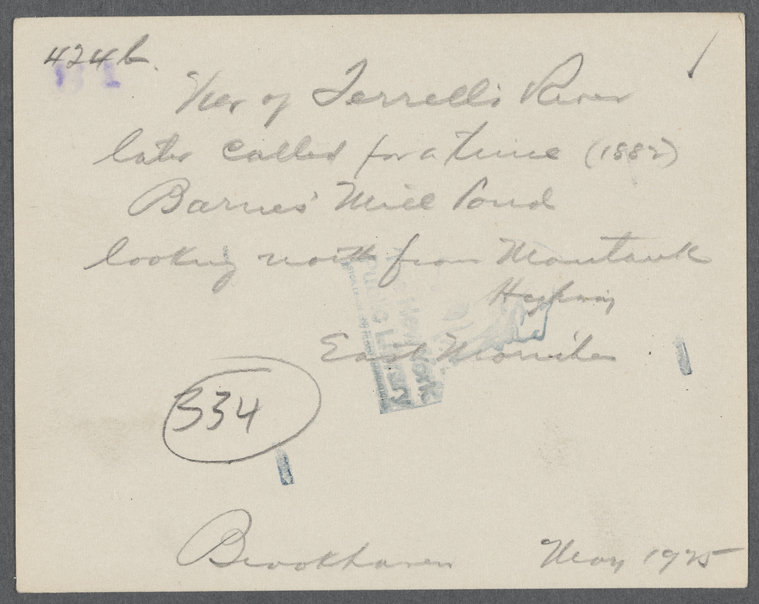 424b.
View of Terrell's River
later called for a time (1882)
Barnes' Mill Pond
looking north from Montauk
Highway
East Moriches
New York
Public
334
Brookhaven May 1925